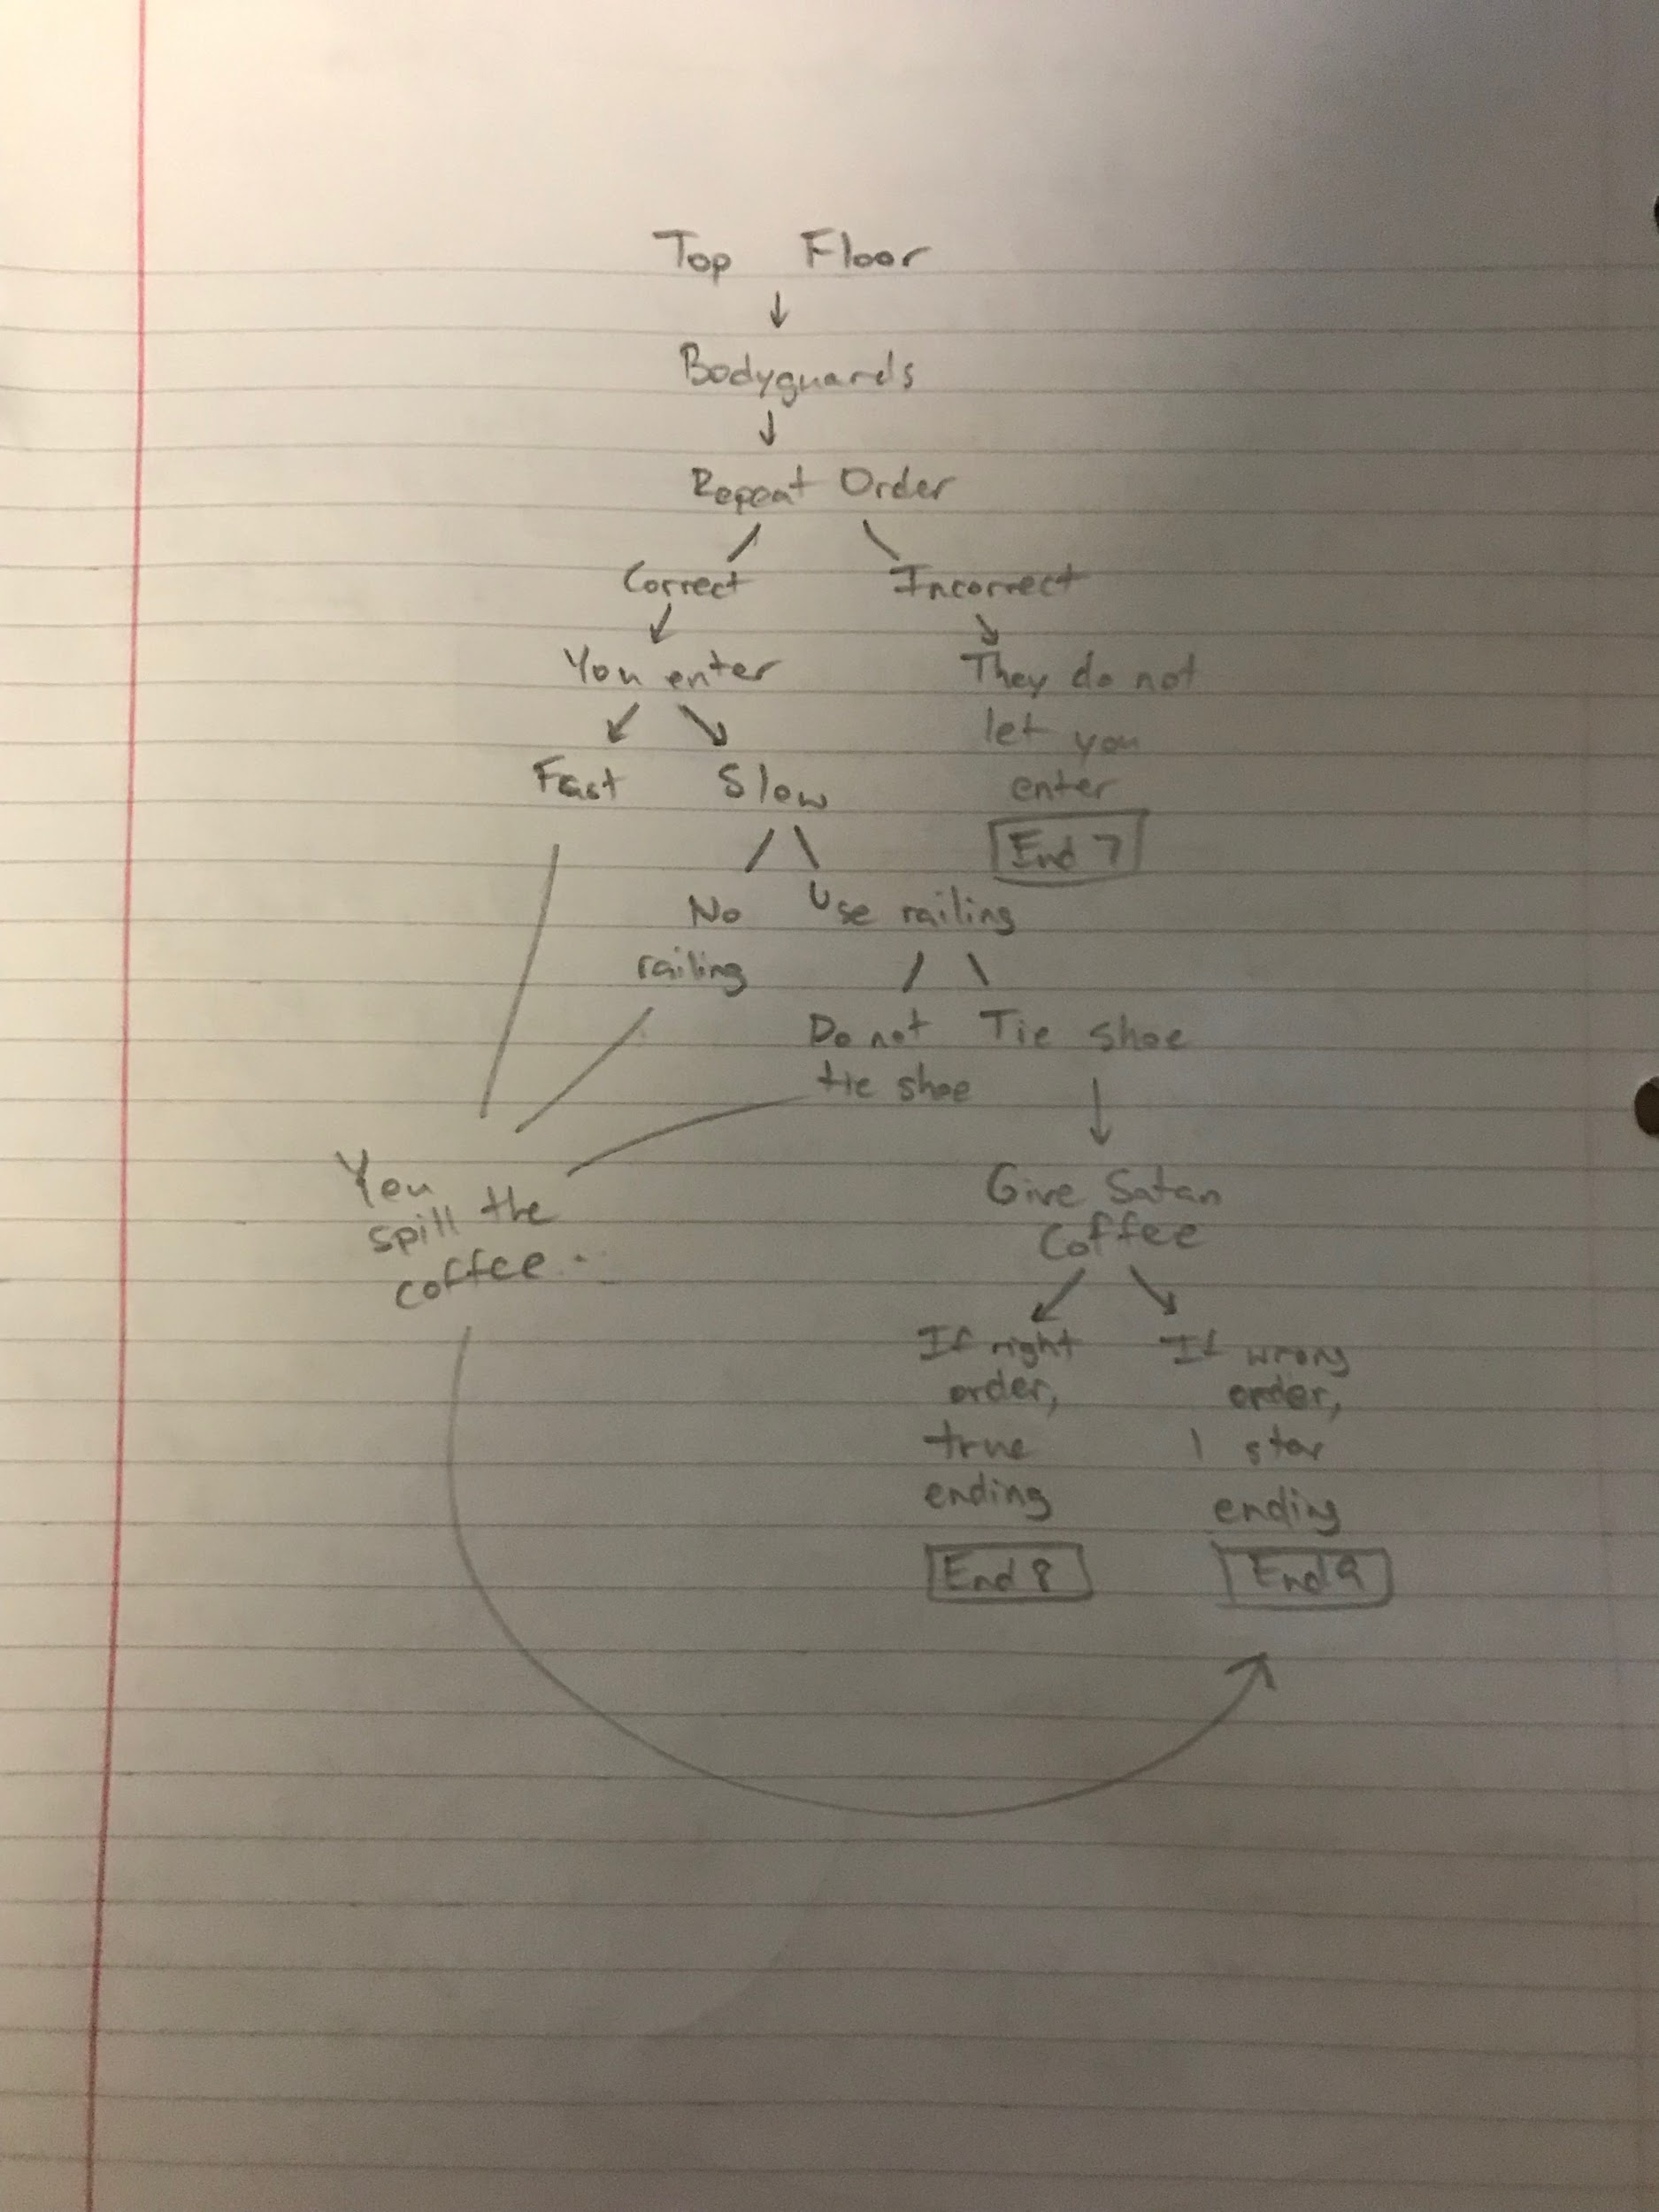 Top Floor
Bodyguards
Repeat Order
Correct
Incorrect
You enter
They do not
let you
enter
End 7
Fast
Slow
No
railing
Use railing
Do not
tie shoe
Tie shoe
You
spill the
coffee..
Give Satan
Coffee
If right
order,
true
ending
End 8
If wrong
order,
1 star
ending
End 9